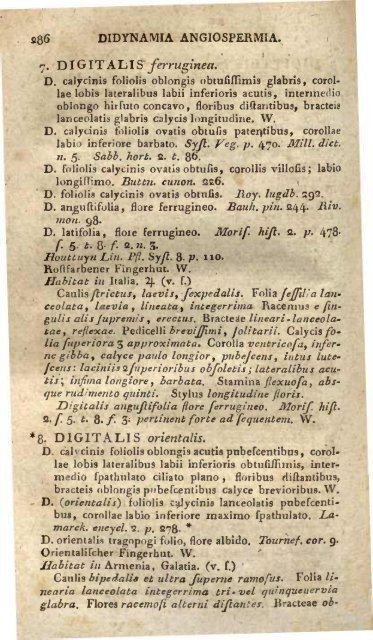 286 DIDYNAMIA ANGIOSPERMIA.
7. DIGITALIS ferruginea.
D. calycinis foliolis oblongis obtuſiſſimis glabris, corol-
lae lobis lateralibus labii inferioris acutis, intermedio
oblongo hirſuto concavo, floribus diſtantibus, bracteis
lanceolatis glabris calycis longitudine. W.
D. calycinis foliolis ovatis obtuſis patentibus, corollae
labio inferiore barbato. Syſt. Veg. p. 470. Mill. dict.
n. 5. Sabb. hort. 2. t. 86.
D. foliolis calycinis ovatis obtuſis, corollis villoſis; labio
longiſſimo. Buttn. cunon. 226.
D. foliolis calycinis ovatis obtuſis. Roy. lugdb. 292.
D. anguſtifolia, flore ferrugineo. Bauh. pin. 244. Riv.
mon. 98.
D. latifolia, flore ferrugineo. Moriſ. hiſt. 2. p. 478.
ſ. 5. t. 8. f. 2. n. 3.
Houttuyn Lin. Pfl. Syſt. 8. p. 110.
Roſtfarbener Fingerhut. W.
Habitat in Italia. ♃ (v. ſ.)
Caulis ſtrictus, laevis, ſexpedalis. Folia ſeſſilia lan-
ceolata, laevia, lineata, integerrima Racemus e ſin-
gulis alis ſupremis, erectus. Bracteae lineari-lanceola-
tae, reflexae. Pedicelli breviſſimi, ſolitarii. Calycis fo-
lia ſuperiora 3 approximata. Corolla ventricoſa, infer-
ne gibba, calyce paulo longior, pubeſcens, intus lute-
ſcens: laciniis 2 ſuperioribus obſoletis; lateralibus acu-
tis; infima longiore, barbata. Stamina flexuoſa, abs-
que rudimento quinti. Stylus longitudine floris.
Digitalis anguſtifolia flore ferrugineo. Moriſ. hiſt.
2. ſ. 5. t. 8. f. 3. pertinent forte ad ſequentem. W.
*8. DIGITALIS orientalis.
D. calycinis foliolis oblongis acutis pubeſcentibus, corol-
lae lobis lateralibus labii inferioris obtuſiſſimis, inter-
medio ſpathulato ciliato plano, floribus diſtantibus,
bracteis oblongis pubeſcentibus calyce brevioribus. W.
D. (orientalis) foliolis calycinis lanceolatis pubeſcenti-
bus, corollae labio inferiore maximo ſpathulato. La-
marck. encycl. 2. p. 278. *
D. orientalis tragopogi folio, flore albido. Tournef. cor. 9.
Orientaliſcher Fingerhut. W.
Habitat in Armenia, Galatia. (v. ſ.)
Caulis bipedalis et ultra ſuperne ramoſus. Folia li-
nearia lanceolata integerrima tri-vel quinquenervia
glabra. Flores racemoſi alterni diſtantes. Bracteae ob-